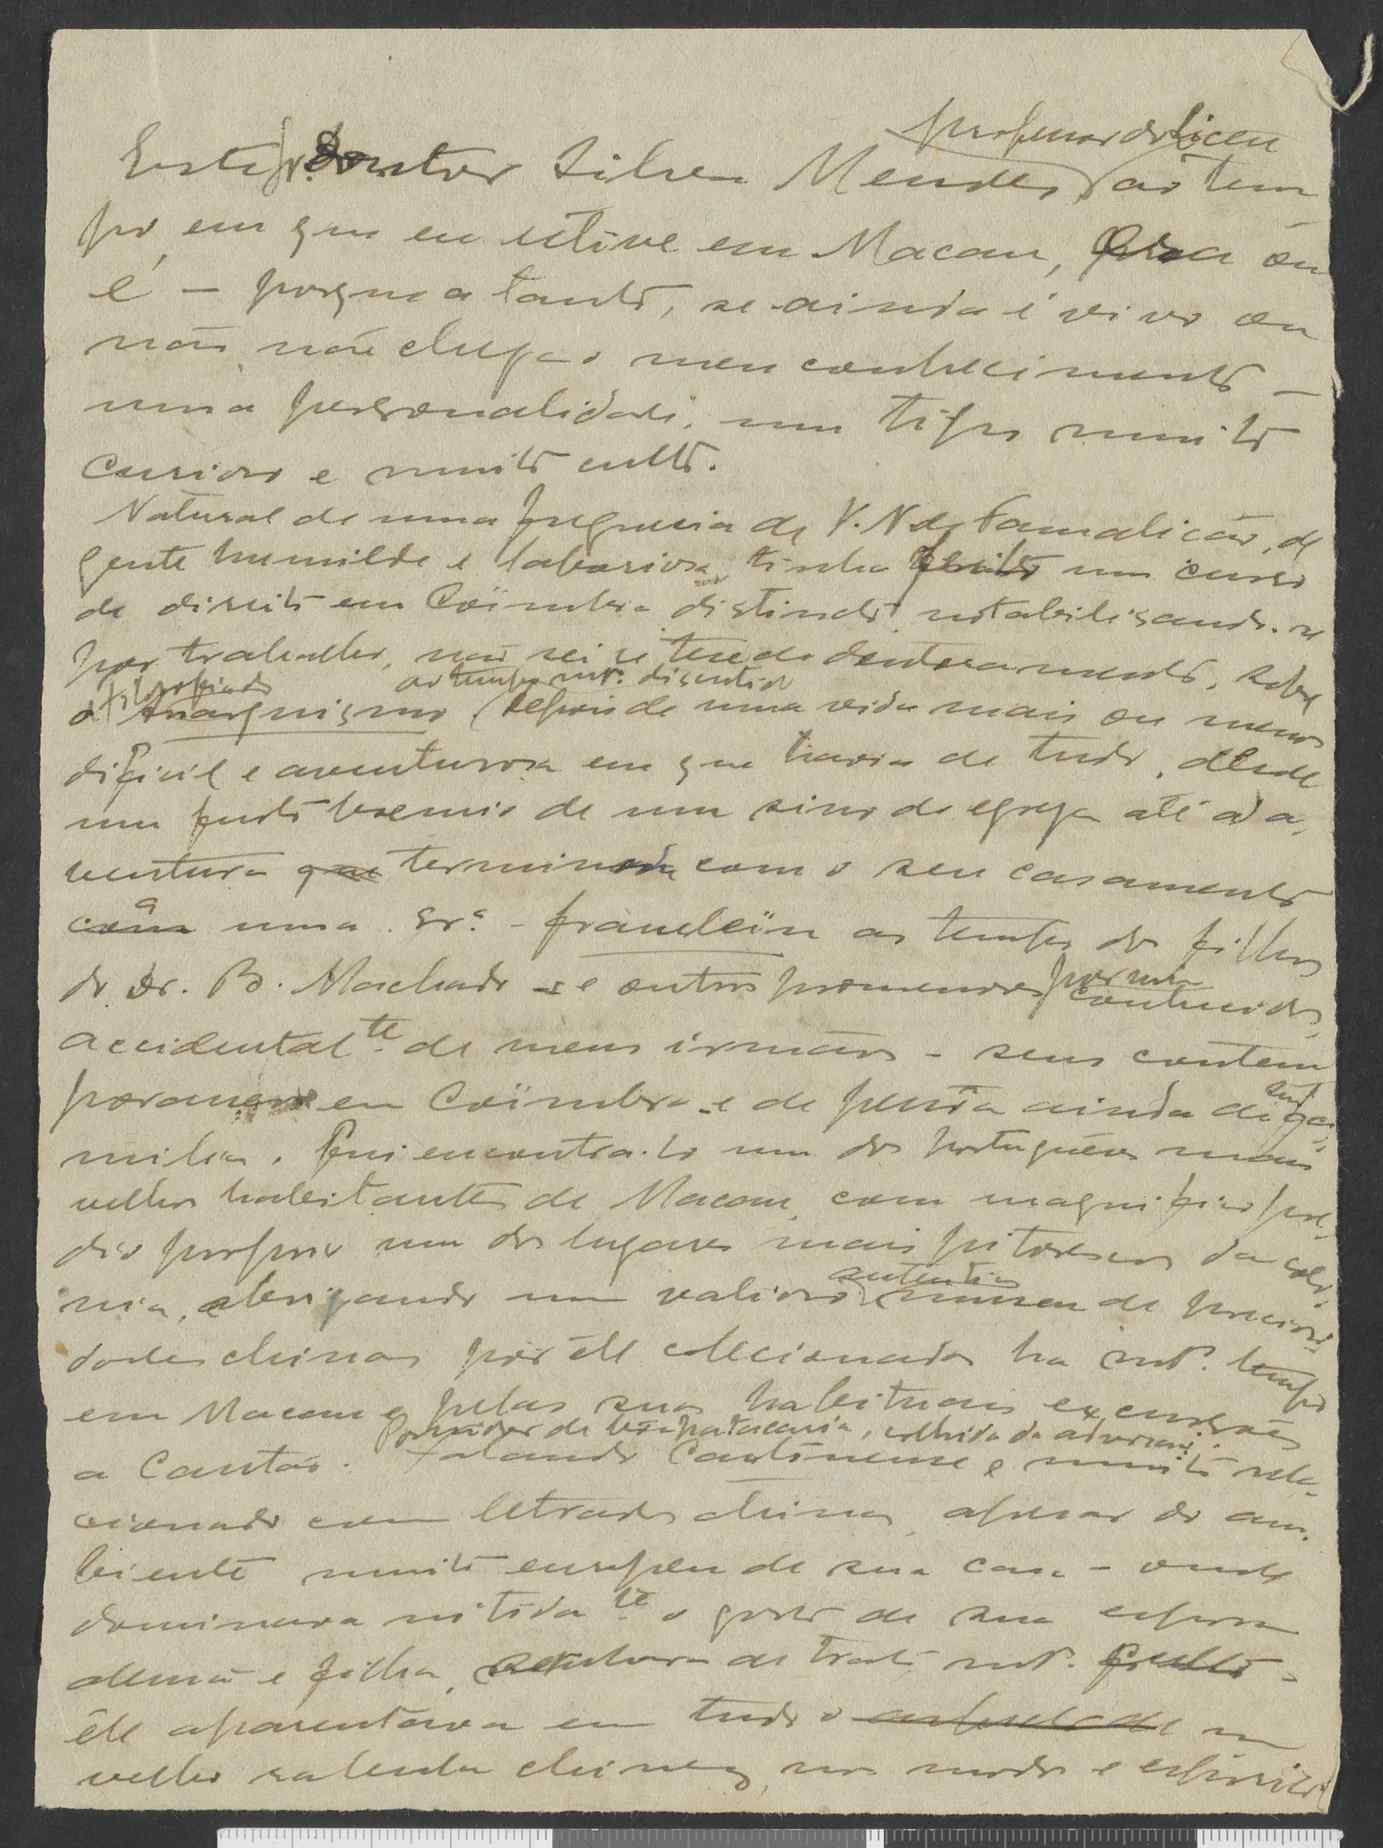 professor do liceu
Este Sr. Doutor Silva Mendes, ao tem-
po em que eu estive em Macau, era ou
é - porque a tanto, se ainda é vivo ou
não, não chega o meu conhecimento -
uma personalidade, um tipo muito
curioso e muito culto.
Natural de uma freguesia de V. N. de Famalicão, de
gente humilde e laboriosa, tinha feito um curso
de direito em Coïmbra distincto, notabilisando-se
por trabalho, não sei se tese de doutoramento, sobre
ao tempo mto. discutido
o Anarquismo (depois de uma vida mais ou menos
dificil e aventurosa em que havia de tudo, desde
um furto boemio de um sino de egreja até á a-
ventura que terminou com o seu casamento
com uma Sr.ª - fräuleïn ao tempo dos filhos
do Dr. B. Machado - e outros pormenores por mim conhecidos,
accidentalte. de meus irmãos - seus contem-
poraneos em Coïmbra - e de pessôa ainda de sua fa-
milia. Fui encontra-lo um dos portuguêses mais
velhos habitantes de Macau, com magnifico pré-
dio proprio num dos lugares mais pitorescos da colo-
nia, abrigando um valioso e autentico museu de preciosi-
dades chinas por êle colecionadas ha mto. tempo
em Macau e pelas suas habituais excursões
Possuidor de boa patacaria, colhida da advocacia.
a Cantão. Falando Cantonense e muito rela-
cionado com letrados chinas, apesar do am-
biente muito europeu de sua casa - onde
dominava nitidate. o gosto de sua esposa
alemã e filha, senhora de trato mto. culto -
êle aparentava em tudo o
velho letrado chinez, nos modos e espirito